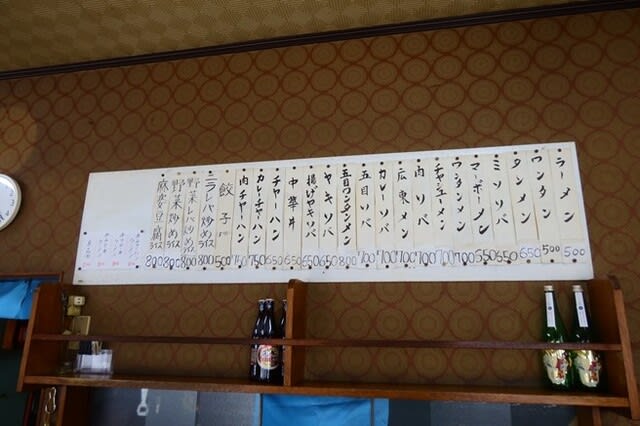 ラーメン 500
ワンタン 500
タンメン 650
ミソソバ 650
マーボーメン 650
ワンタンメン 700
チャーシューメン 700
肉ソバ 700
広東メン 700
カレーソバ 700
五目ソバ 700
五目ワンタンメン 800
ヤキソバ 650
揚げヤキソバ 650
中華丼 650
チャーハン 650
カレーチャーハン 750
肉チャーハン 750
餃子 500
ニラレバ炒めライス 800
野菜レバ炒めライス 800
野菜炒めライス 800
麻婆豆腐ライス 800